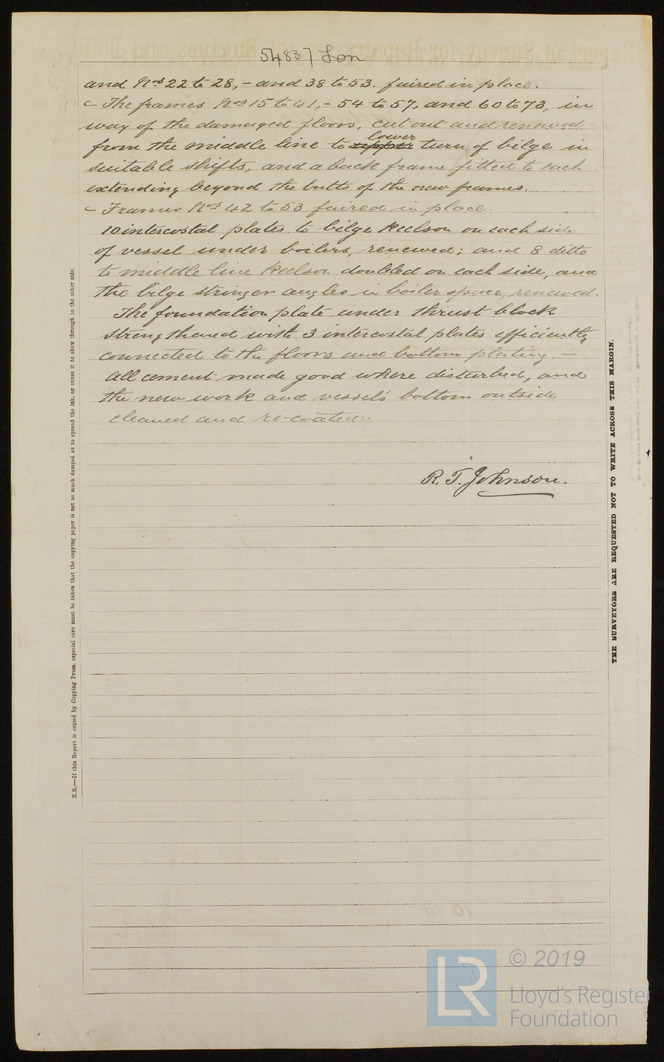 54837 Lon
and Nos 22 to 28, - and 38 to 53. faired in place.
The frames Nos 15 to 41, - 54 to 57, and 60 to 73, in
way of the damaged floors, cut out and renewed
from the middle line to upper lower turn of bilge in
suitable shifts, and a back frame fitted to each
extending beyond the butts of the new frames.
Frames Nos 42 to 53 faired in place.
10 intercostal plates to bilge keelson on each side
of vessel under boilers, renewed; and 8 ditto
to middle line keelson doubled on each side, and
the bilge stringer angles in boiler space, renewed.
The foundation plate under thrust block
strengthened with 3 intercostal plates efficiently
connected to the floors and bottom plating. -
All cement made good where disturbed, and
the new work and vessel's bottom outside
cleaned and re-coated.
R. T. Johnson.
N.B.—If this Report is copied by Copying Press, especial care must be taken that the copying paper is not so much damped as to spread the ink, or cause it to show through to the other side.
THE SURVEYORS ARE REQUESTED NOT TO WRITE ACROSS THIS MARGIN.
LR
© 2019
Lloyd's Registe
Foundation